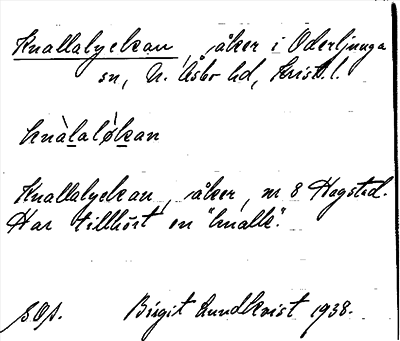 Knallalyckan, åker i Oderljunga
sn, N. Åsbo hd, Krist. l.
knàlaló̀kan
Knallalyckan, åker, nr 8 Hagstad.
Har tillhört en "knalle".
SOA. Birgit Lundkvist 1938.